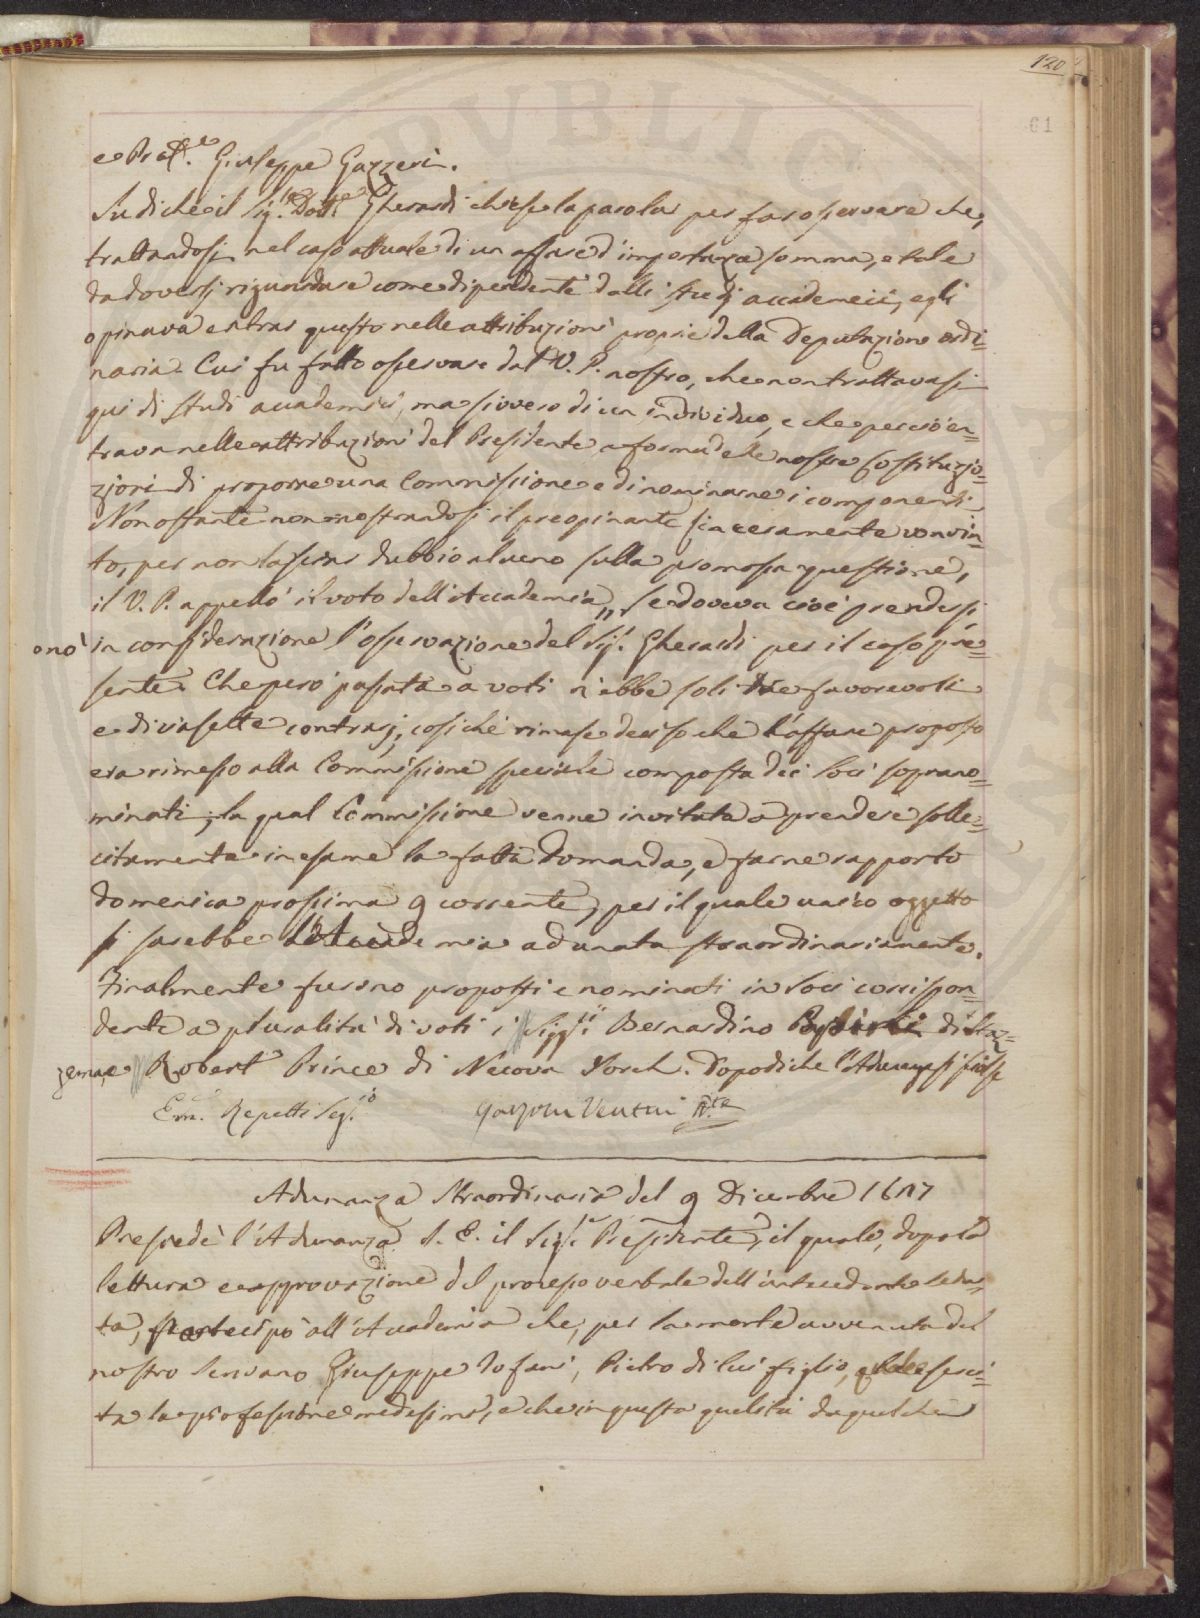 120
61
e Prof.e Giuseppe Gazzeri.
Su di che il Sig.r Dott.re Gherardi chiese la parola per far osservare che,
trattandosi nel caso attuale di un affare d'importanza somma, e tale
da doversi riguardare come dipendente dalli studj accademici, egli
opinava entrar questo nelle attribuzioni proprie della Deputazione ordi=
naria. Cui fu fatto osservare dal V. P. nostro, che non trattavasi
qui di studi accademici, ma sivvero di un individuo, e che perciò en=
trava nelle attribuzioni del Presidente a forma delle nostre Costituzio=
zioni di proporre una Commissione e di nominarne i componenti.
Non ostante non mostrandosi il preopinante sinceramente convin=
to, per non lasciar dubbio alcuno sulla promossa questione,
il V. P. appellò il voto dell'Accademia „ se doveva cioè prendersi
onò in considerazione l'osservazione del Sig.r Gherardi per il caso pre=
sente. Che però passata a voti n'ebbe soli tre favorevoli
e diciasette contrarj, cosichè rimase deciso che l'affare proposto
era rimesso alla Commissione speciale composta dei Soci soprano=
minati; la qual Commissione venne invitata a prendere solle=
citamente in esame la fatta domanda, e farne rapporto
domenica prossima 9 corrente, per il quale unico oggetto
si sarebbe l'Accademia adunata straordinariamente.
Finalmente furono proposti e nominati in Soci corrispon=
denti a pluralità di voti i Sigg.ri Bernardino di Staz=
zema, e Robert Prince di Nuova Yorch. Dopodiché l'Adunanza si sciolse
Em. Repetti Seg.rio Garzoni Venturi P.te
Adunanza Straordinaria del 9 Dicembre 1847
Presiedè l'Adunanza S. E. il Sig.r Presidente, il quale, dopo la
lettura e approvazione del processo verbale dell'antecedente sedu=
ta, partecipò all'Accademia che, per la morte avvenuta del
nostro Scrivano Giuseppe Tofani, Pietro di lui figlio, che eserci=
ta la professione medesima, e che in questa qualità da qualche